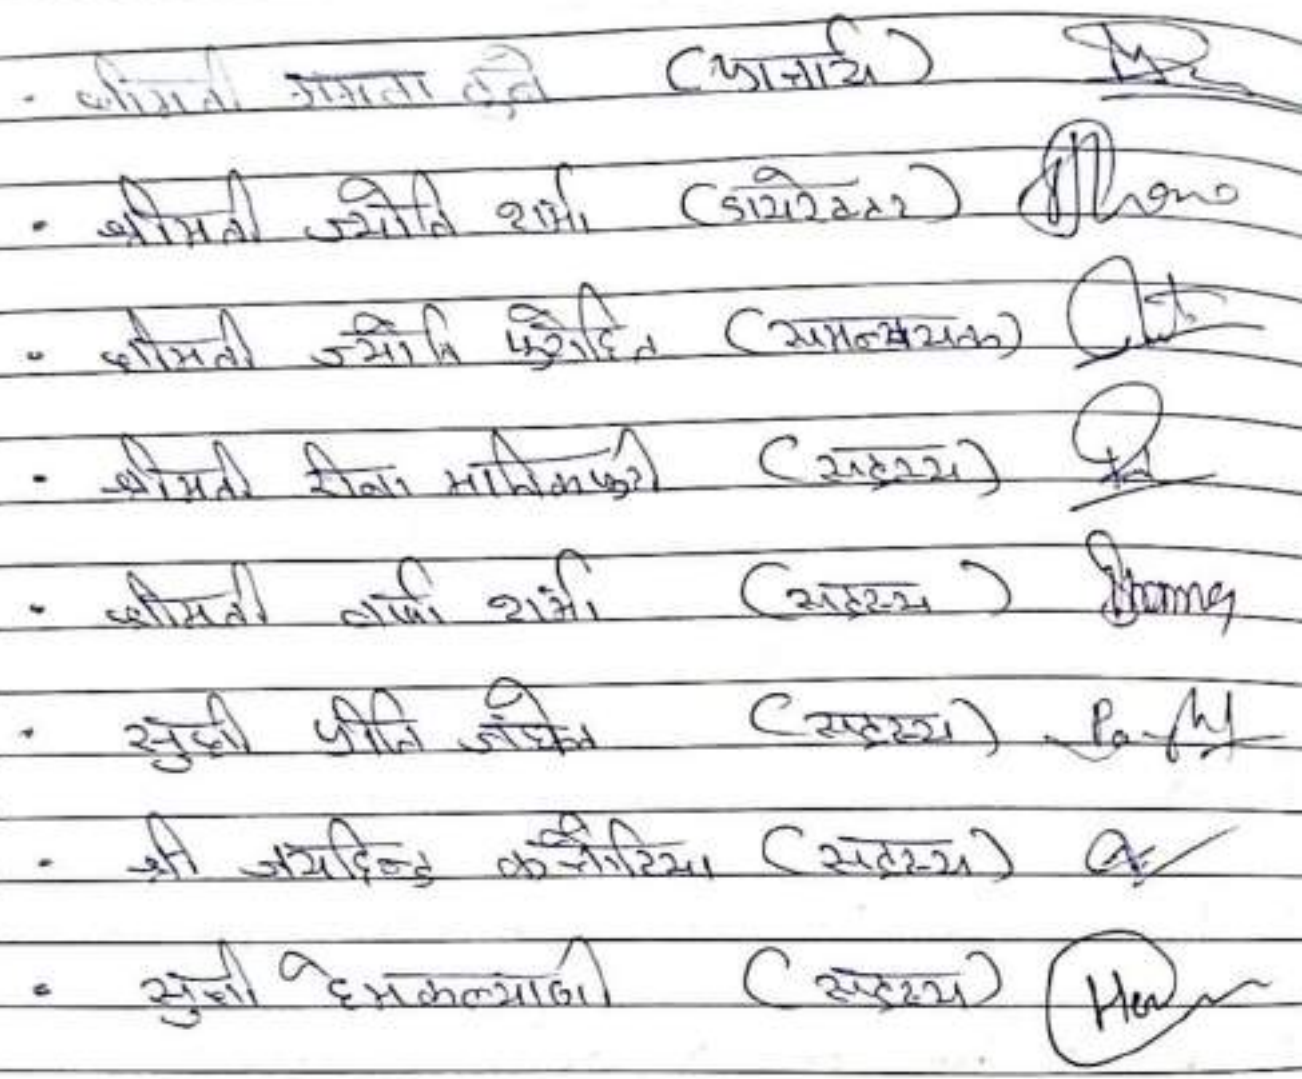 · श्रीमती ममता दुबे (प्राचार्य)
· श्रीमती ज्योति शर्मा (डायरेक्टर)
· श्रीमती ज्योति पुरोहित (समन्वयक)
· श्रीमती रीना मानिकपुरी (सदस्य)
· श्रीमती वर्षा शर्मा (सदस्य)
· सुश्री प्रीति जंघेल (सदस्य)
· श्री जयहिन्द कछौटिया (सदस्य)
· सुश्री हेमकल्याणी (सदस्य)